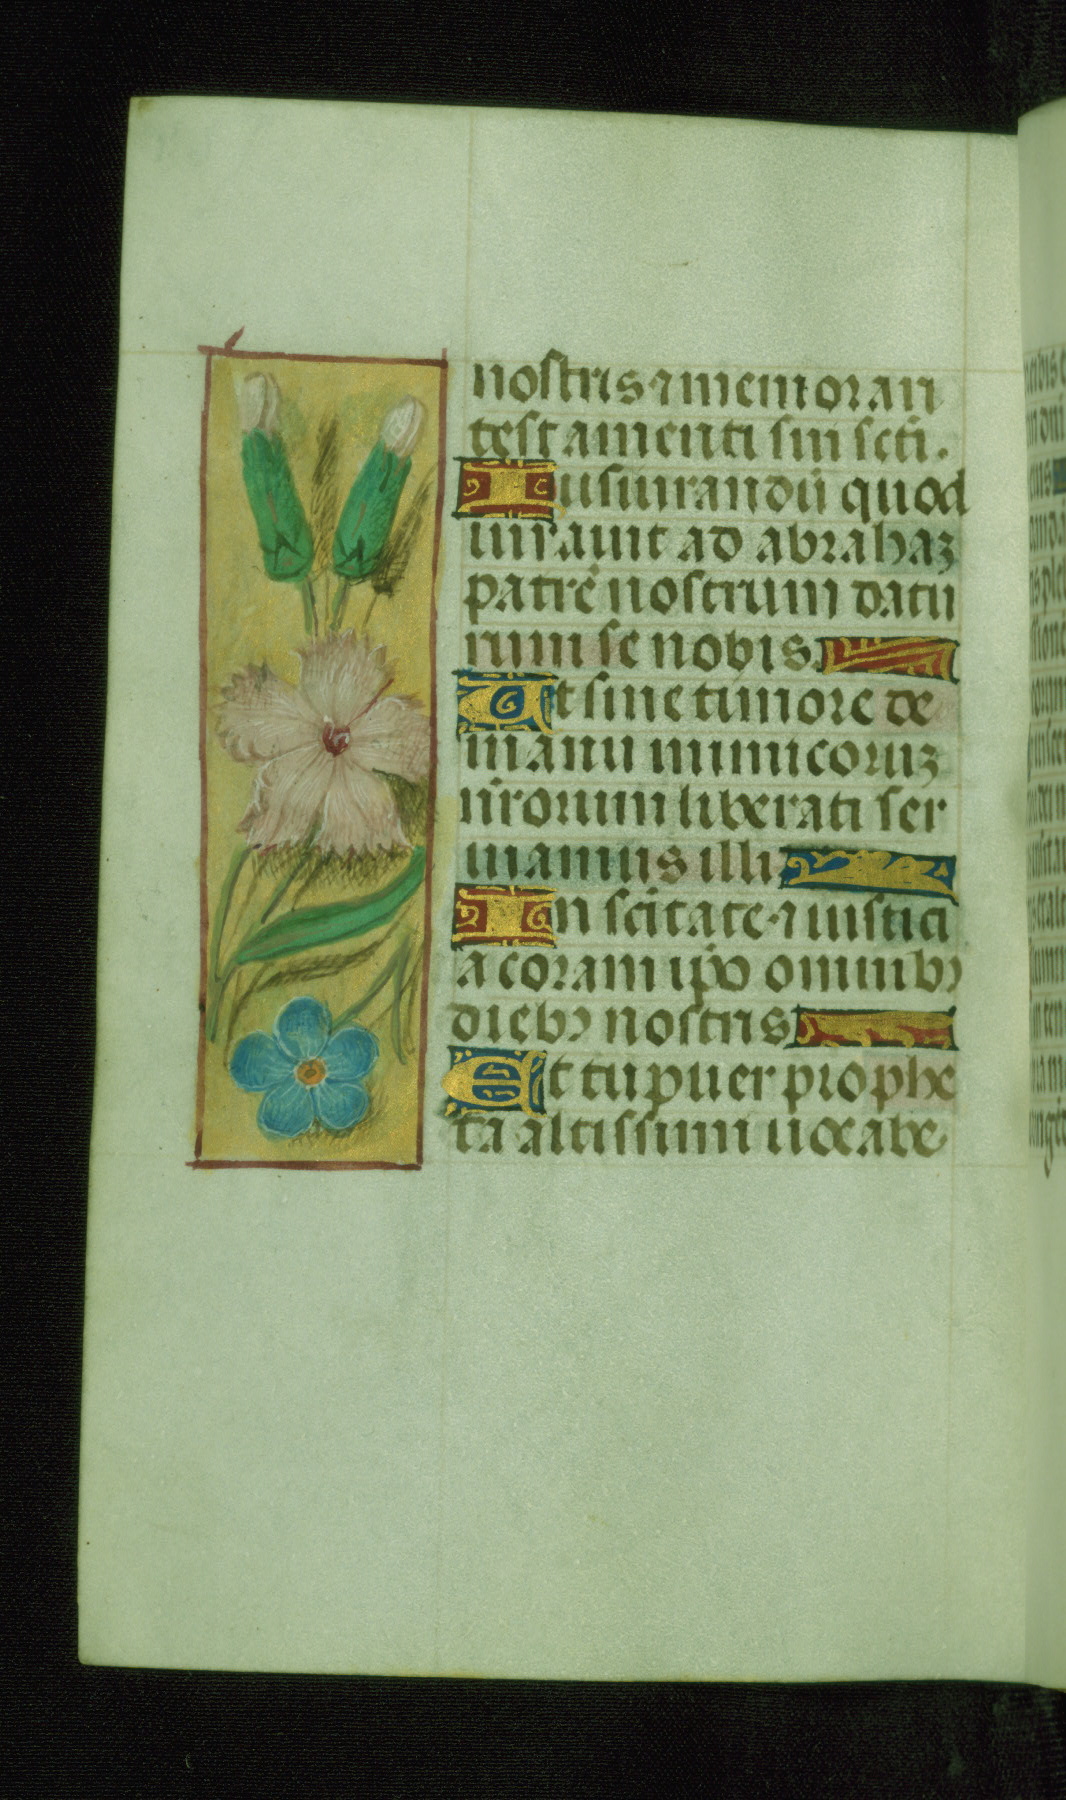 nostris ⁊ memorari
testamenti sui scti.
Iusiurandū quod
iurauit ad abrahaꝫ
patrē nostrum datu
rum se nobis.
Ut sine timore de
manu inimicoruꝫ
nrorum liberati ser
uiamus illi.
In scitate ⁊ iustici
a coram ipō omnibꝰ
diebꝰ nostris.
Et tu puer prophe
ta altissimi uocabe